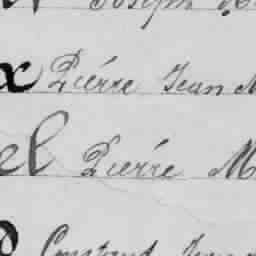 Joseph
x Pierre Jean M
el Pierre M
Constand Jean